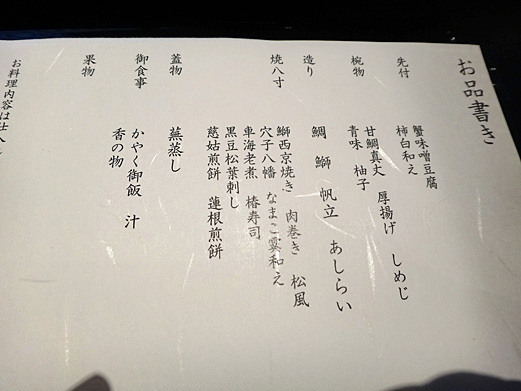 お品書き
先付
蟹味噌豆腐
柿白和え
椀物
甘鯛真丈 厚揚げ しめじ
青味 柚子
造り
鯛 鰤 帆立 あしらい
焼八寸
鰤西京焼き 肉巻き 松風
穴子八幡 なまこ霙和え
車海老煮 椿寿司
黒豆松葉刺し
慈姑煎餅 蓮根煎餅
蓋物
蕪蒸し
御食事
かやく御飯 汁
香の物
果物
お料理内容は仕入